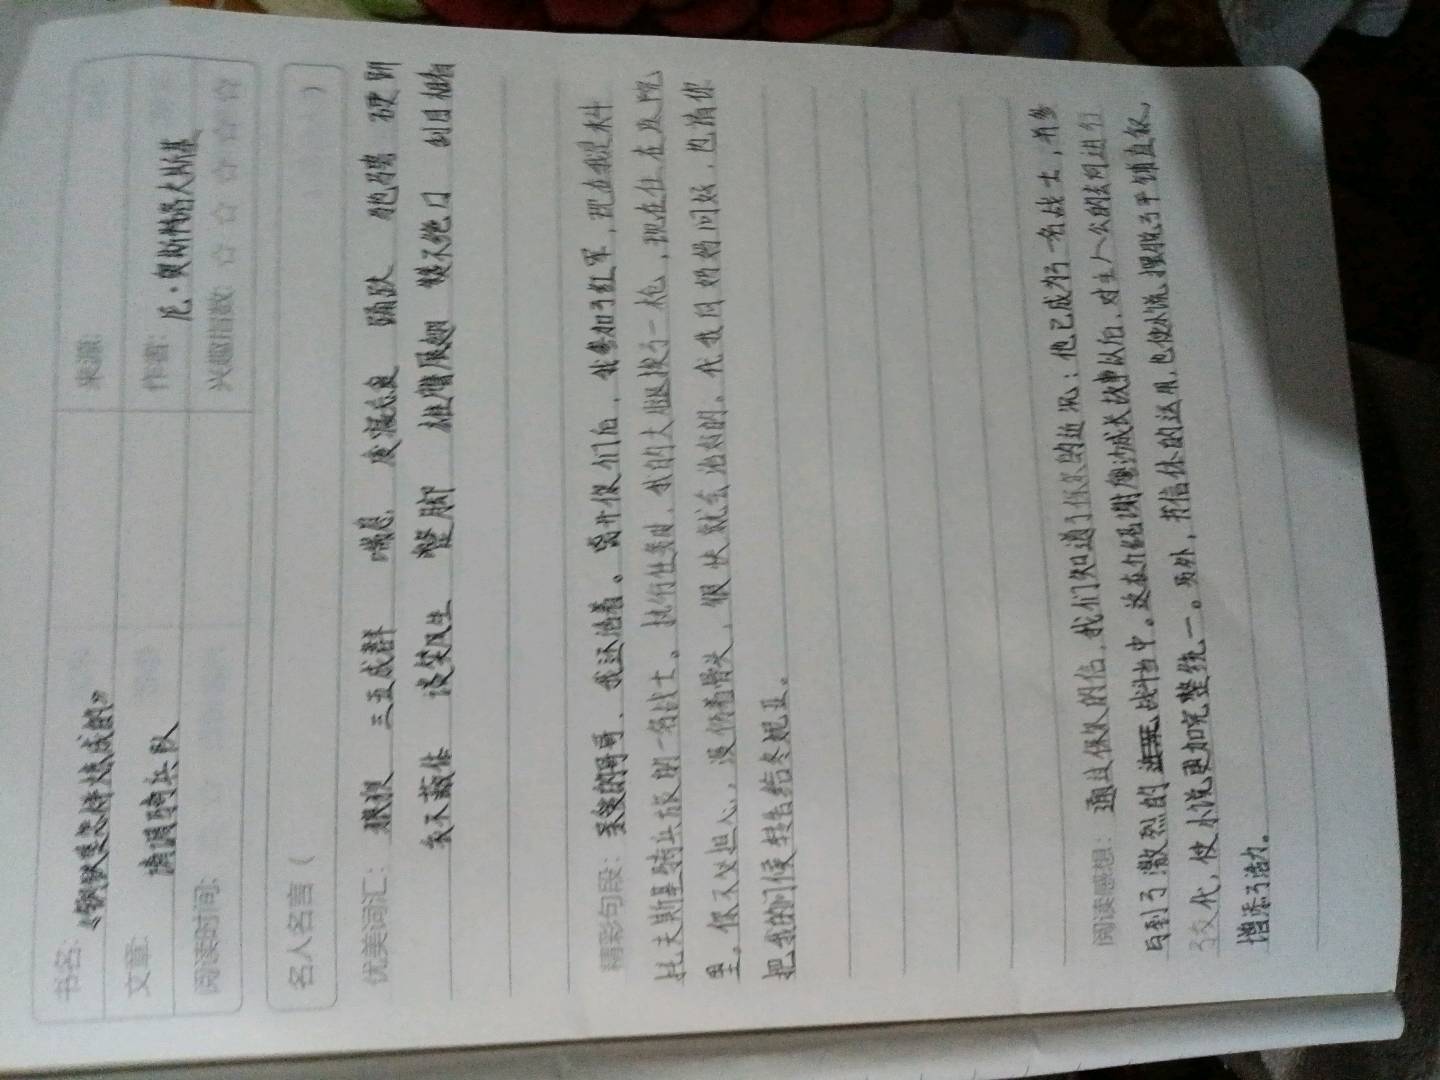 书名:《钢铁是怎样炼成的》 来源:
文章: 满员骑兵队 作者: 尼·奥斯特洛夫斯基
阅读时间: 兴趣指数: ☆ ☆ ☆ ☆ ☆
名人名言 ( )
优美词汇: 狠狠 三五成群 喘息 疲惫 踊跃 胳膊
衣不蔽体 谈笑风生 蹩脚 雄鹰展翅 赞不绝口 刮目相看
精彩句段: 亲爱的哥哥、我还活着。离开你们后,我参加了红军,现在我是科
托夫斯基骑兵旅的一名战士。执行任务时,我的大腿挨了一枪,现在住在医院
里。你不必担心,没伤着骨头,很快就会治好的。代我向妈妈问好,也请你
把我的问候转告给冬妮亚。
阅读感想: 通过保尔的信,我们知道了保尔的近况:他已成为了一名战士,并参
与到了激烈的战斗当中。这在介绍谢廖沙成长故事以后,对主人公的去向进行
了交代,使小说更加完整统一。另外,书信体的运用,也使小说摆脱了平铺直叙,
增添了活力。